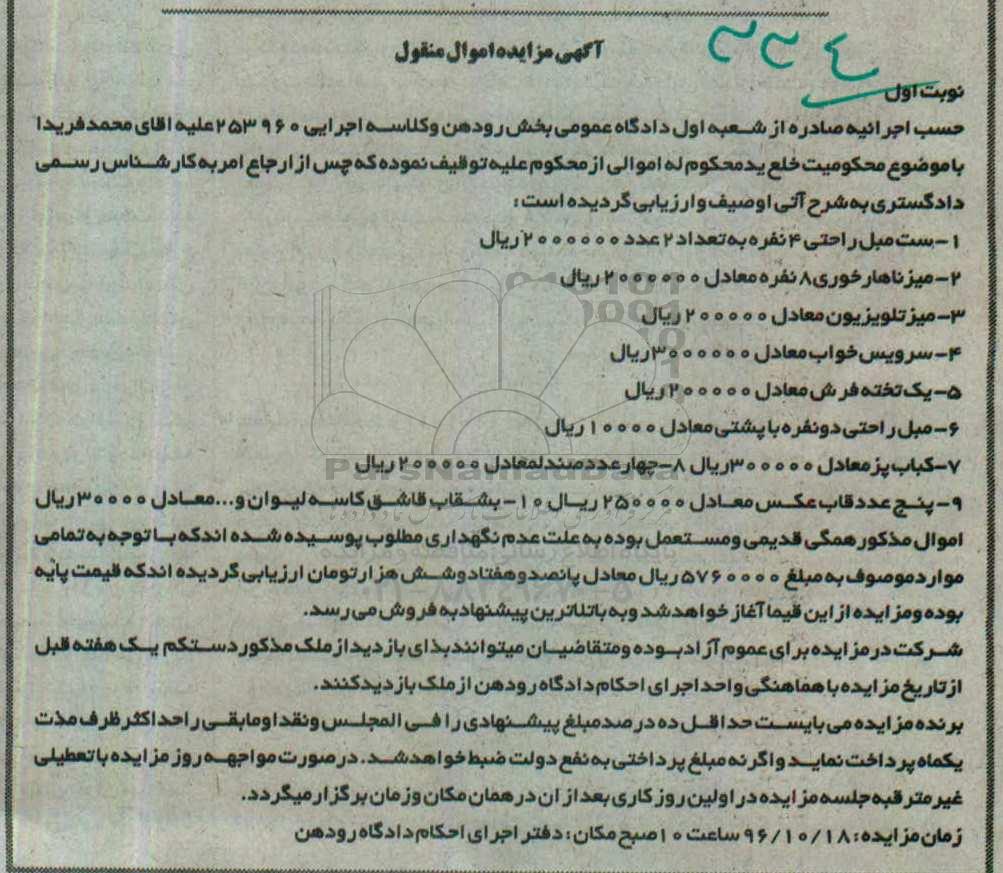 آگهی مزایده اموال منقول
نوبت اول
حسب اجرائیه صادره از شعبه اول دادگاه عمومی بخش رودهن وکلاسه اجرایی ۲۵۳۹۶۰ علیه اقای محمدفریدا
باموضوع محکومیت خلع یدمحکوم له اموالی از محکوم علیه توقیف نموده که چس از ارجاع امر به کارشناس رسمی
دادگستری به شرح آتی اوصیف وارزیابی گردیده است:
۱-ست مبل راحتی ۴ نفره به تعداد ۲ عدد ۲۰۰۰۰۰۰ ریال
۲-میزناهارخوری ۸ نفره معادل ۲۰۰۰۰۰۰ ریال
۳-میزتلویزیون معادل ۲۰۰۰۰۰ ریال
۴-سرویس خواب معادل ۳۰۰۰۰۰۰ ریال
۵-یک تخته فرش معادل ۲۰۰۰۰۰ ریال
۶-مبل راحتی دونفره باپشتی معادل ۱۰۰۰۰ ریال
۷-کباب پزمعادل ۳۰۰۰۰۰ ریال ۸-چهارعددصندلمعادل ۲۰۰۰۰۰ ریال
۹-پنج عددقاب عکس معادل ۲۵۰۰۰۰ ریال ۱۰-بشقاب قاشق کاسه لیوان و...معادل ۳۰۰۰۰ ریال
اموال مذکورهمگی قدیمی ومستعمل بوده به علت عدم نگهداری مطلوب پوسیده شده اندکه با توجه به تمامی
مواردموصوف به مبلغ ۵۷۶۰۰۰۰ ریال معادل پانصدوهفتادوشش هزارتومان ارزیابی گردیده اندکه قیمت پایه
بوده ومزایده ازاین قیماآغازخواهدشد وبه باتلاترین پیشنهادبه فروش می رسد.
شرکت درمزایده برای عموم آزادبوده ومتقاضیان میتوانندبذای بازدیدازملک مذکوردستکم یک هفته قبل
ازتاریخ مزایده باهماهنگی واحداجرای احکام دادگاه رودهن ازملک بازدیدکنند.
برنده مزایده می بایست حداقل ده درصدمبلغ پیشنهادی را فی المجلس ونقداومابقی راحداکثرظرف مذت
یکماه پرداخت نماید واگرنه مبلغ پرداختی به نفع دولت ضبط خواهدشد.درصورت مواجهه روزمزایده باتعطیلی
غیرمترقبه جلسه مزایده دراولین روزکاری بعدازان درهمان مکان وزمان برگزارمیگردد.
زمان مزایده: ۹۶/۱۰/۱۸ ساعت ۱۰ صبح مکان: دفتراجرای احکام دادگاه رودهن
ParsNamadData